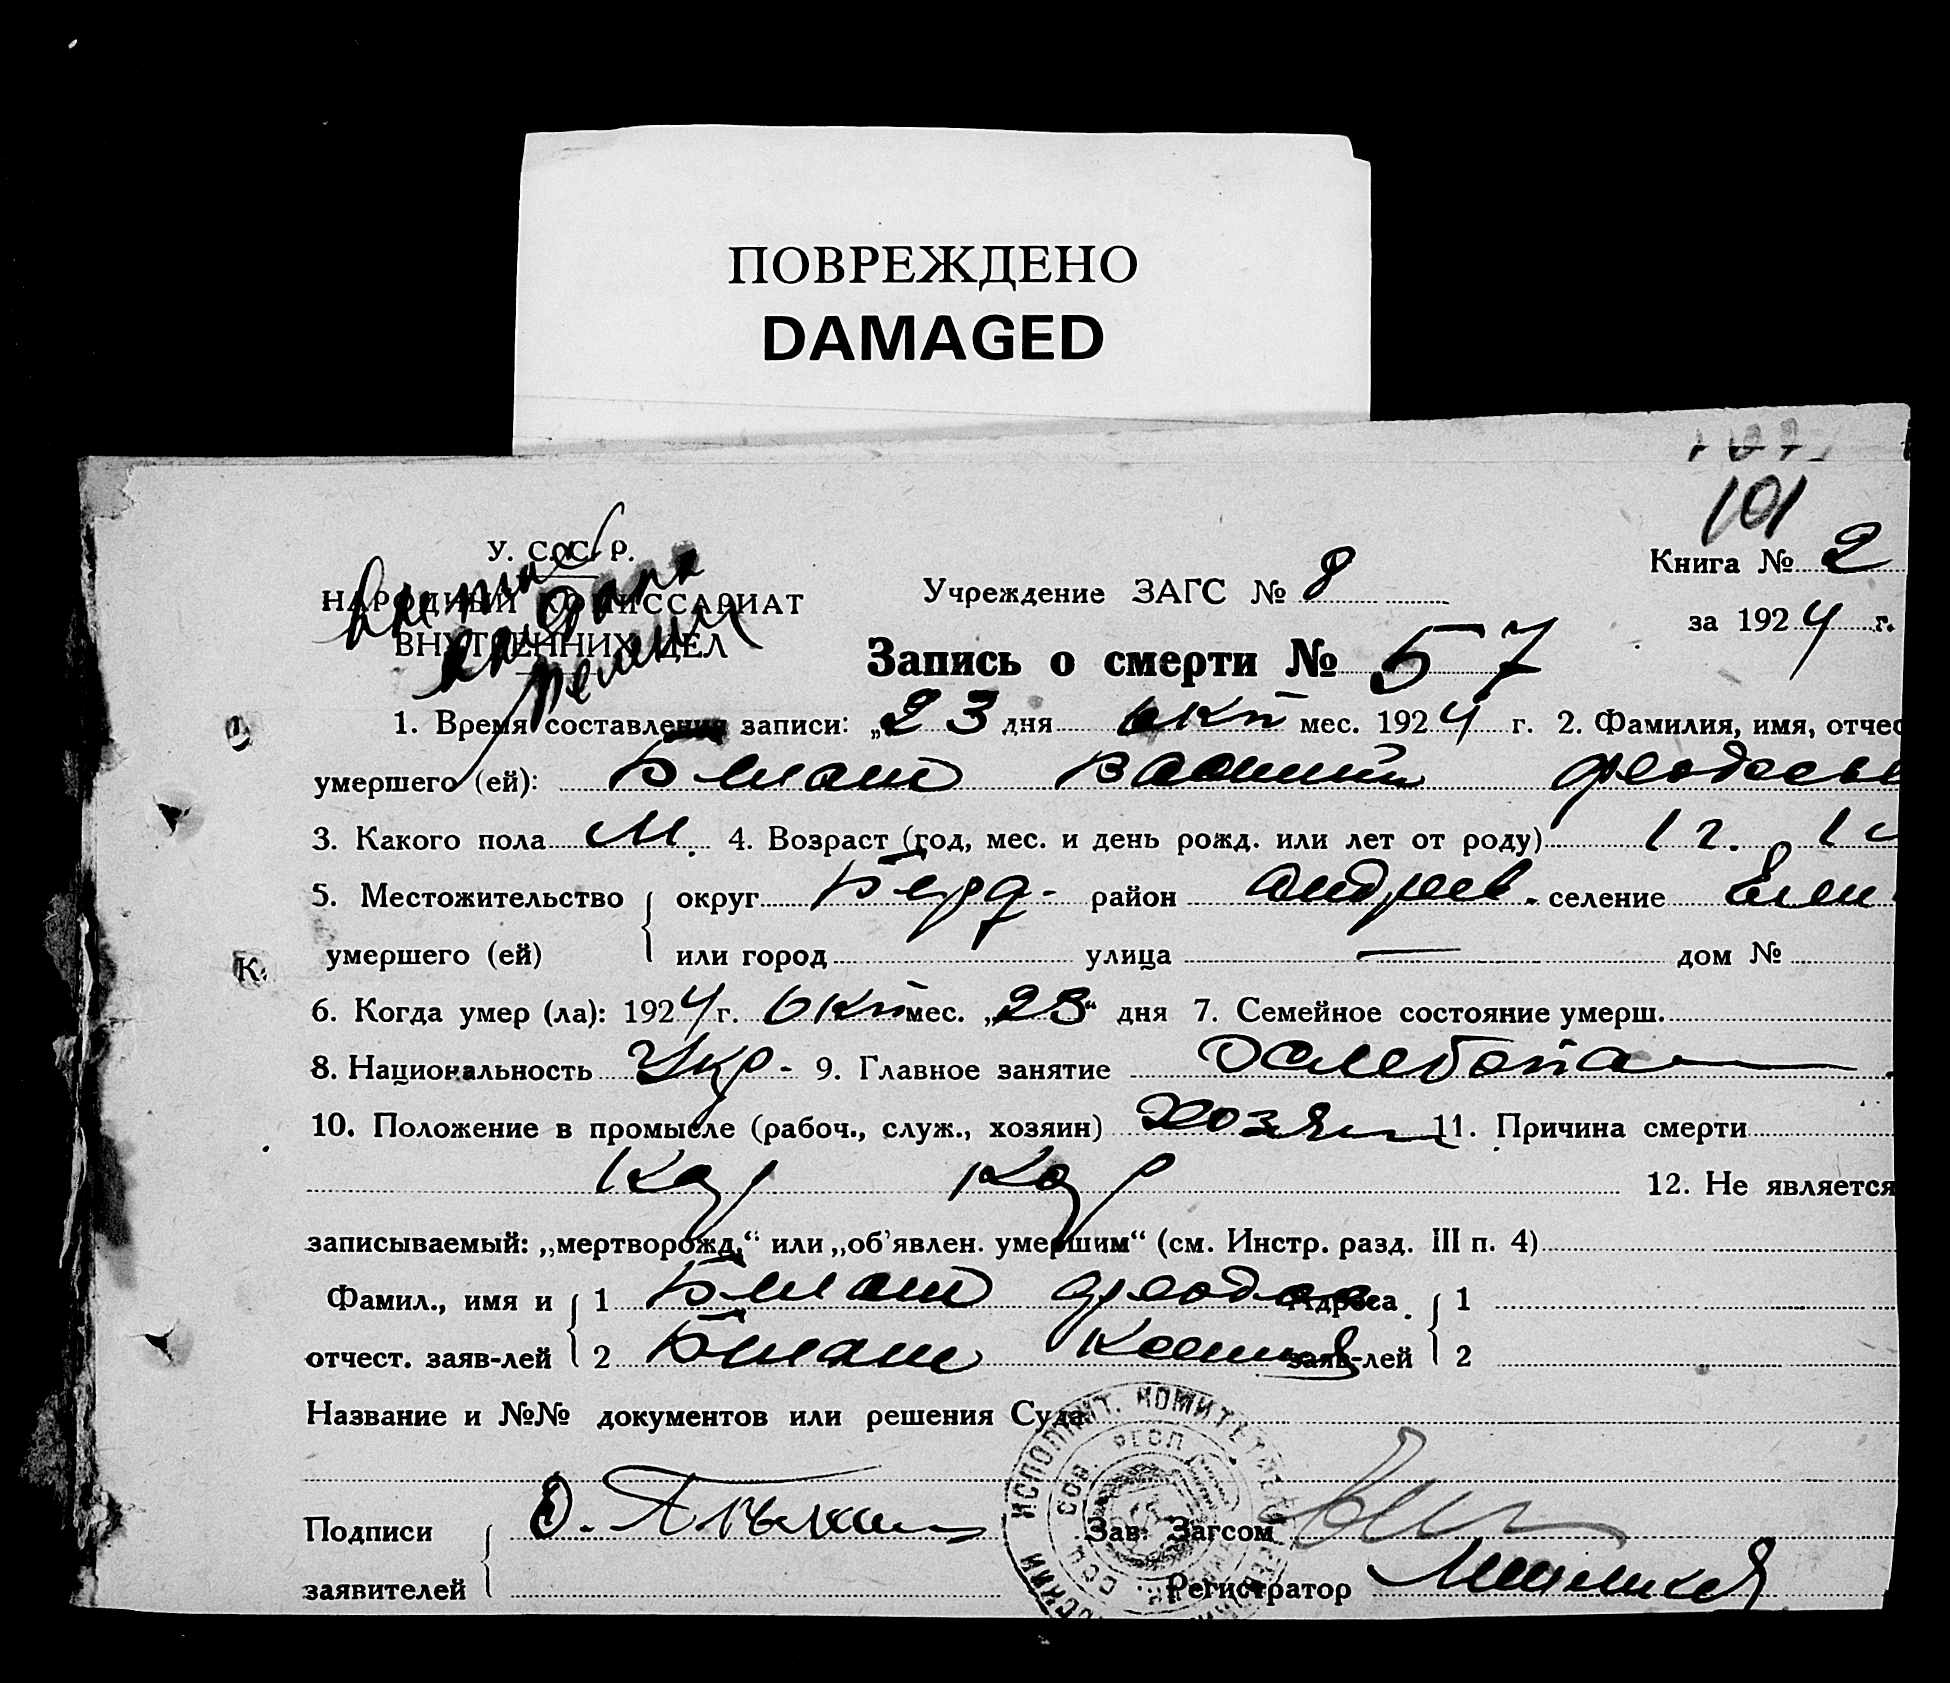 ПОВРЕЖДЕНО
DAMAGED
101
У. С. С. Р.
НАРОДНЫЙ КОМИССАРИАТ
ВНУТРЕННИХ ДЕЛ
Учреждение ЗАГС № 8
Книга № 2
за 1924 г.
Запись о смерти № 57
1. Время составления записи: „23 дня окт мес. 1924 г. 2. Фамилия, имя, отчес
умершего (ей): Билаш Василий Феодосьев
3. Какого пола М. 4. Возраст (год, мес. и день рожд. или лет от роду) 1 г. 1
5. Местожительство округ Берд- район Андреев. селение Елен
умершего (ей) или город улица — дом №
6. Когда умер (ла): 1924 г. Окт мес. „23“ дня 7. Семейное состояние умерш.
8. Национальность Укр- 9. Главное занятие
10. Положение в промысле (рабоч., служ., хозяин) Хозяин 11. Причина смерти
12. Не является
записываемый: „мертворожд.“ или „об’явлен. умершим“ (см. Инстр. разд. III п. 4)
Фамил., имя и 1 Билаш Феодос Адреса 1
отчест. заяв-лей 2 Билаш заяв-лей 2
Название и №№ документов или решения Суда
Подписи Зав. Загсом
заявителей Регистратор
К.
ИСПОЛНИТ. КОМИТЕТ
СОВ. РЕСП.